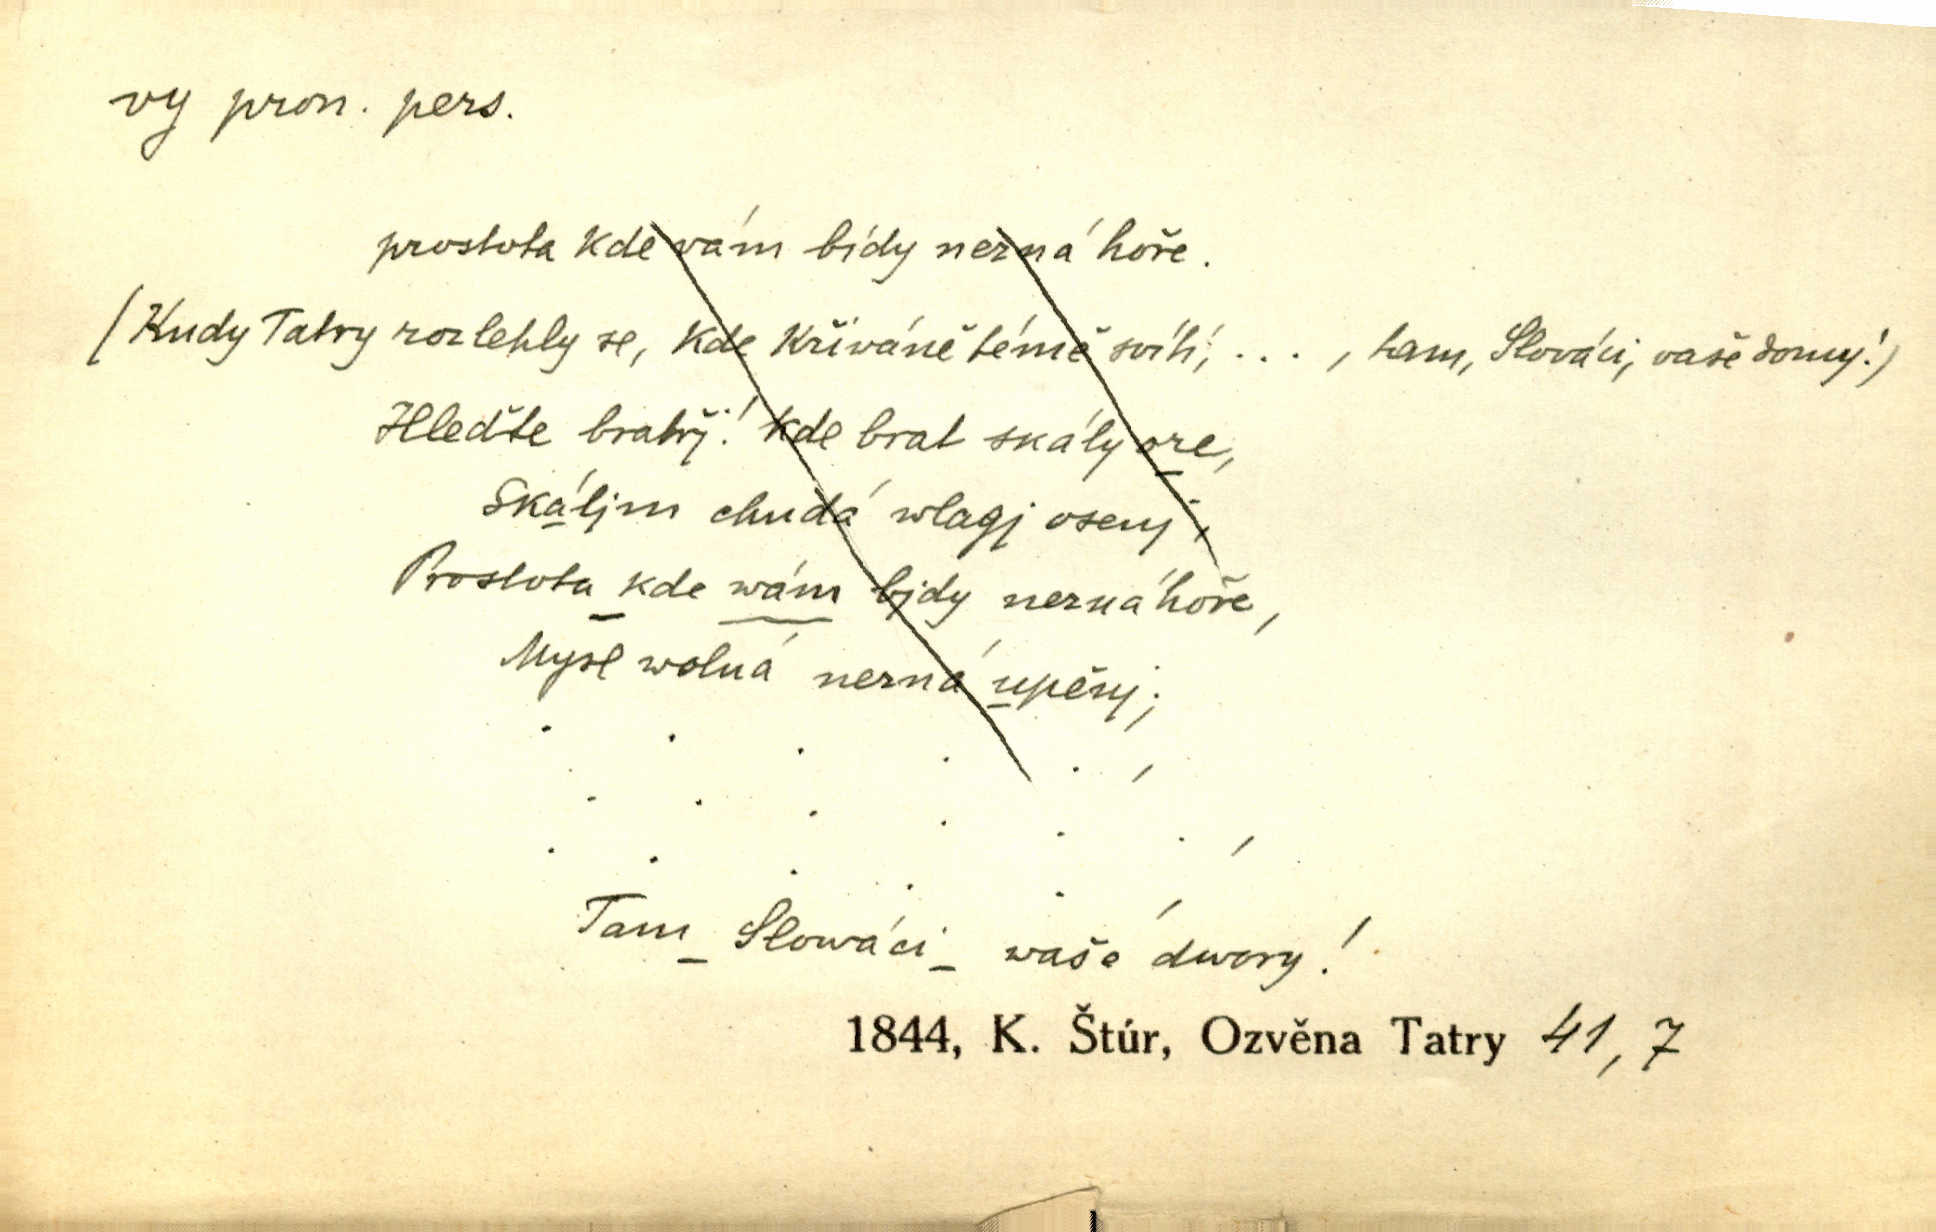 vy pron. pers.
prostota kde vám bídy nezná hoře.
(Kudy Tatry rozlehly se, kde Křiváně témě svítí, . . . , tam, Slováci, vaše domy!)
Hleďte bratřj! kde brat skály oře,
Skáljm chudá wlagj osenj,
Prostota kde wám bjdy nezná hoře,
Mysl wolná nezná upěnj;
. . . . . ,
. . . . . . ,
. . . . . ,
Tam Slowáci waše dwory!
1844, K. Štúr, Ozvěna Tatry 41, 7